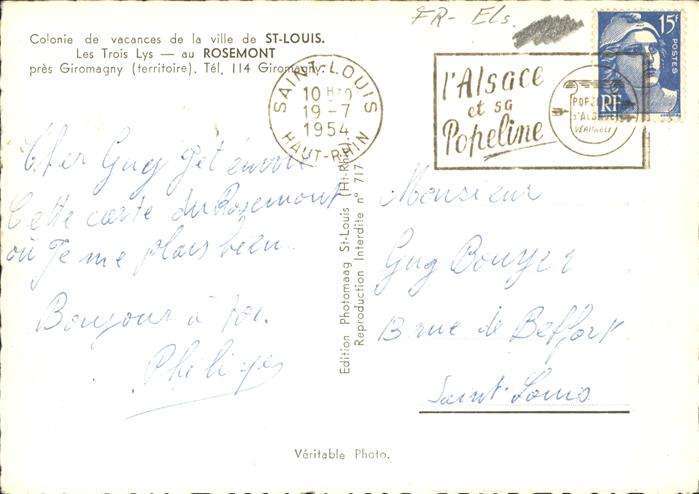 FR- Els.
Colonie de vacances de la ville de ST-LOUIS.
Les Trois Lys — au ROSEMONT
près Giromagny (territoire). Tél. 114 Giromagny.
SAINT-LOUIS
10 H
19-7
1954
HAUT-RHIN
l'Alsace
et sa
Popeline
15F
POSTES
RF
Cher Guy Je t'envoie
cette carte du Rosemont
où Je me plais bien.
Bonjour à toi.
Philippe
Edition Photomaag St-Louis (Ht-Rhin)
Reproduction Interdite n° 717
Monsieur
Guy
rue de Belfort
Saint-Louis
Véritable Photo.